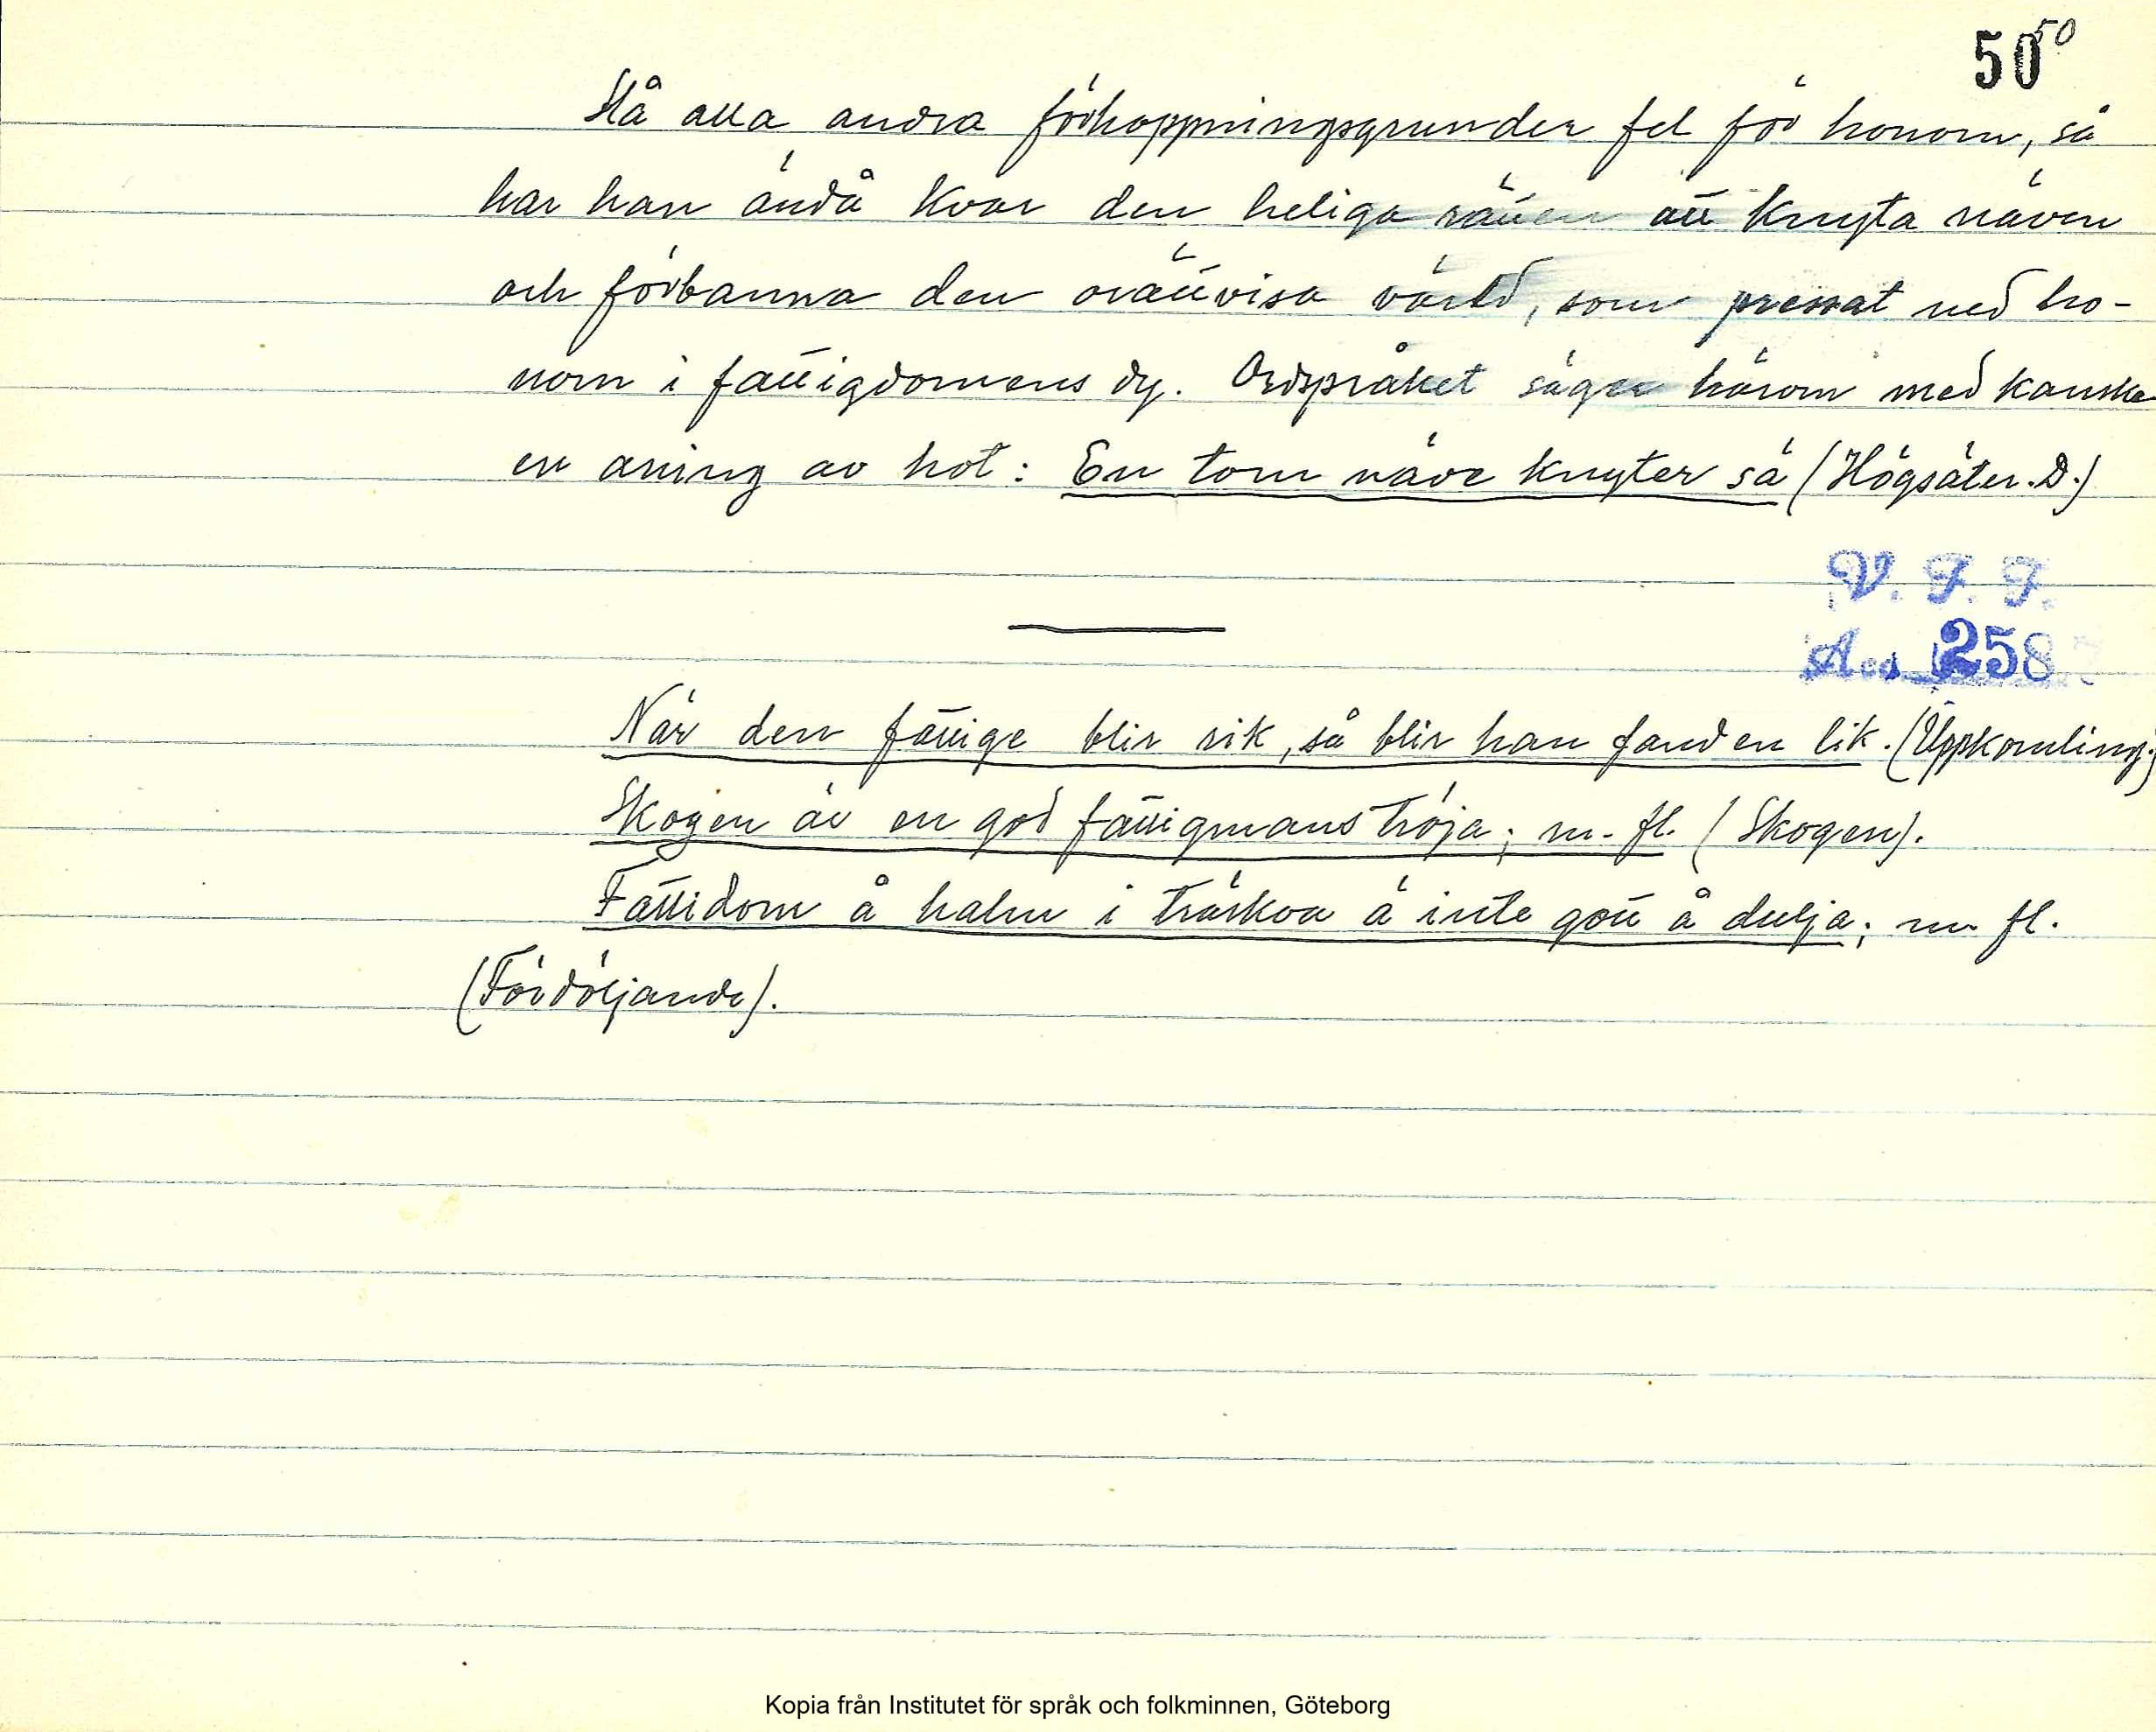 50 50
Slå alla andra förhoppningsgrunder fel för honom, så
har han ändå kvar den heliga rätten att knyta näven
och förbanna den orättvisa värld, som pressat ned ho-
nom i fattigdomens dy. Ordspråket säger härom med kanske
en aning av hot: En tom näve knyter sä (Högsäter. D.)
V. F. F.
Acc. 258
När den fattige blir rik, så blir han fanden lik. (Uppkomling.)
Skogen är en god fattigmans tröja; m. fl. (Skogen).
Fattidom å halm i träskoa ä inte gott å dulja; m fl.
(Fördöljande).
Kopia från Institutet för språk och folkminnen, Göteborg